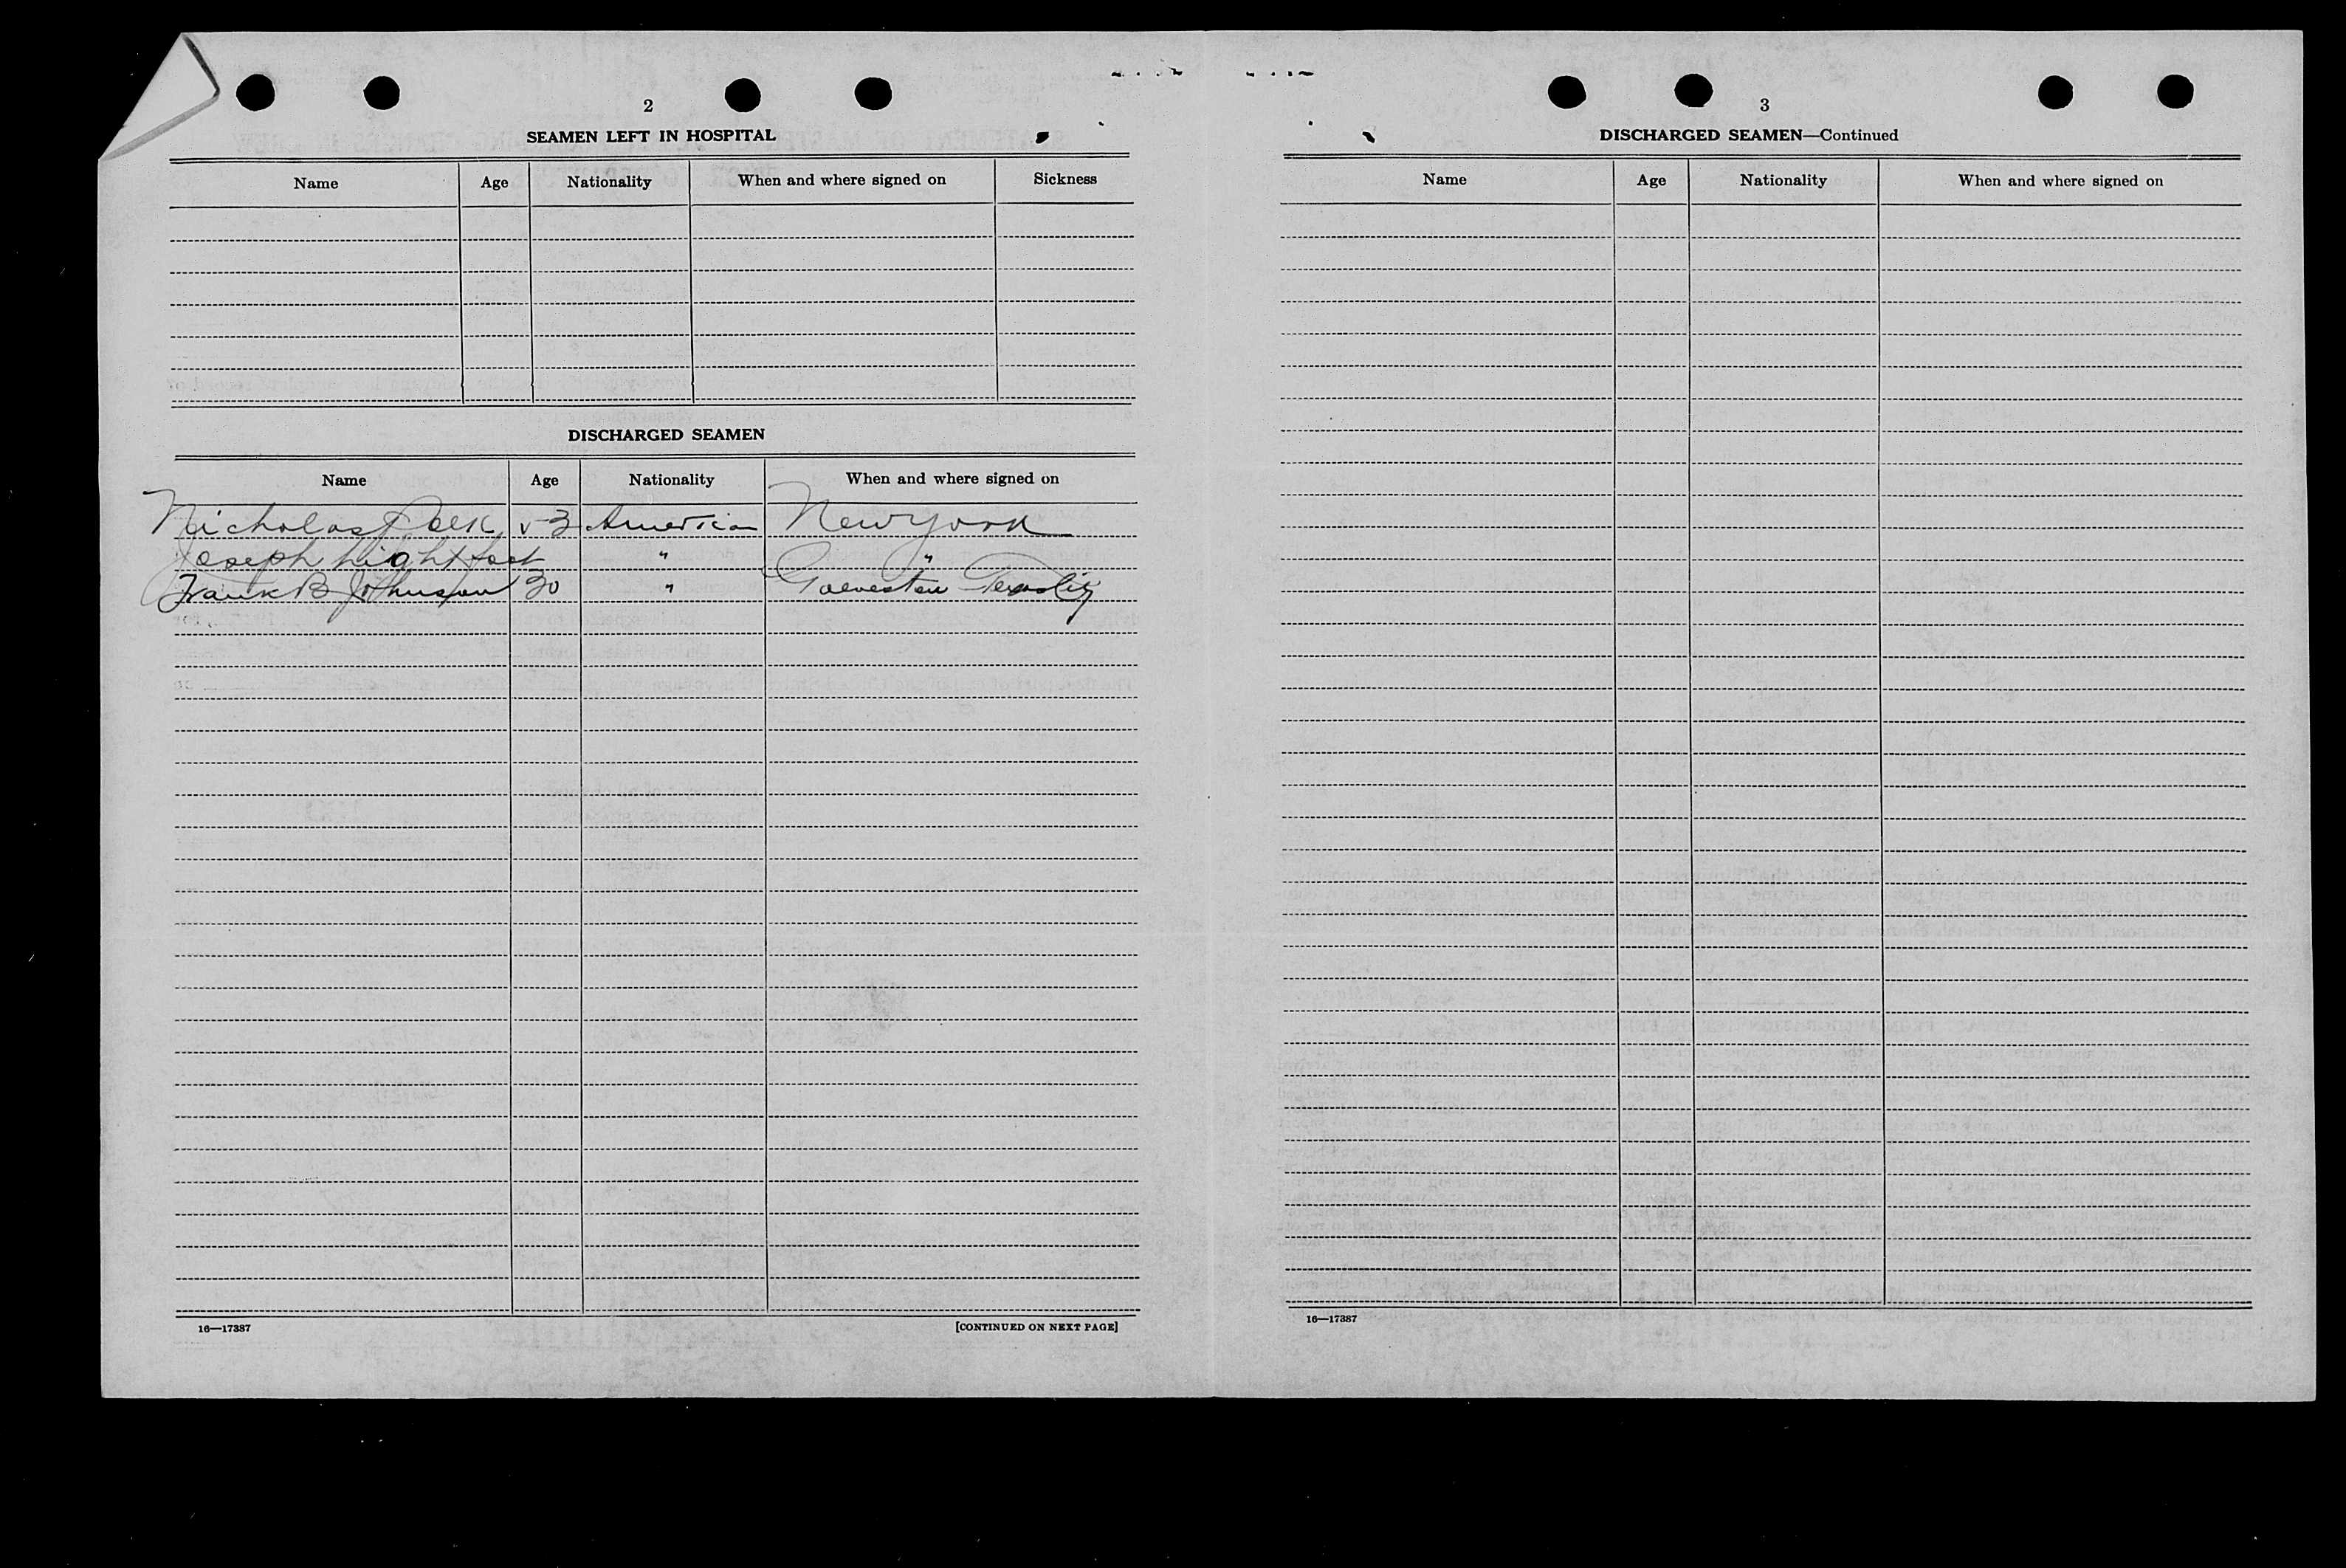 2
SEAMEN LEFT IN HOSPITAL
Name Age Nationality When and where signed on Sickness
DISCHARGED SEAMEN
Name Age Nationality When and where signed on
Nicholas 53 American New York
Joseph Lightfoot " "
Frank B Johnson 30 " Galveston
16—17387 [CONTINUED ON NEXT PAGE]
3
DISCHARGED SEAMEN—Continued
Name Age Nationality When and where signed on
16—17387